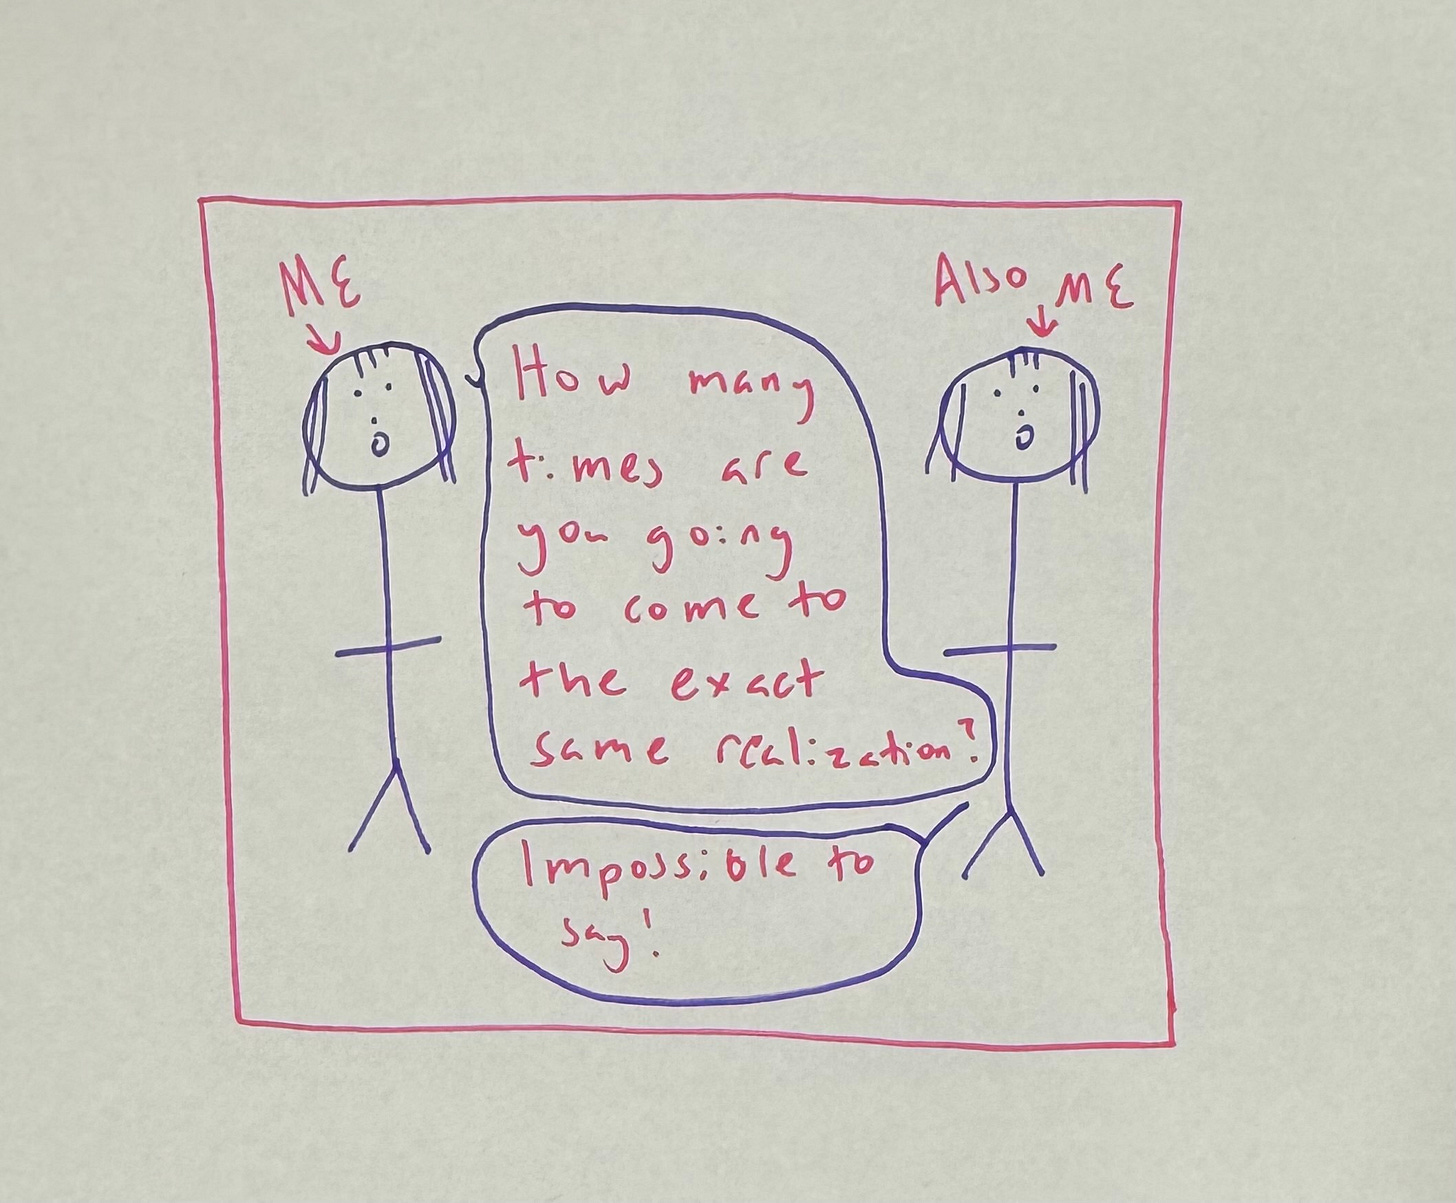 ME
Also ME
How many
times are
you going
to come to
the exact
same realization?
Impossible to
say!